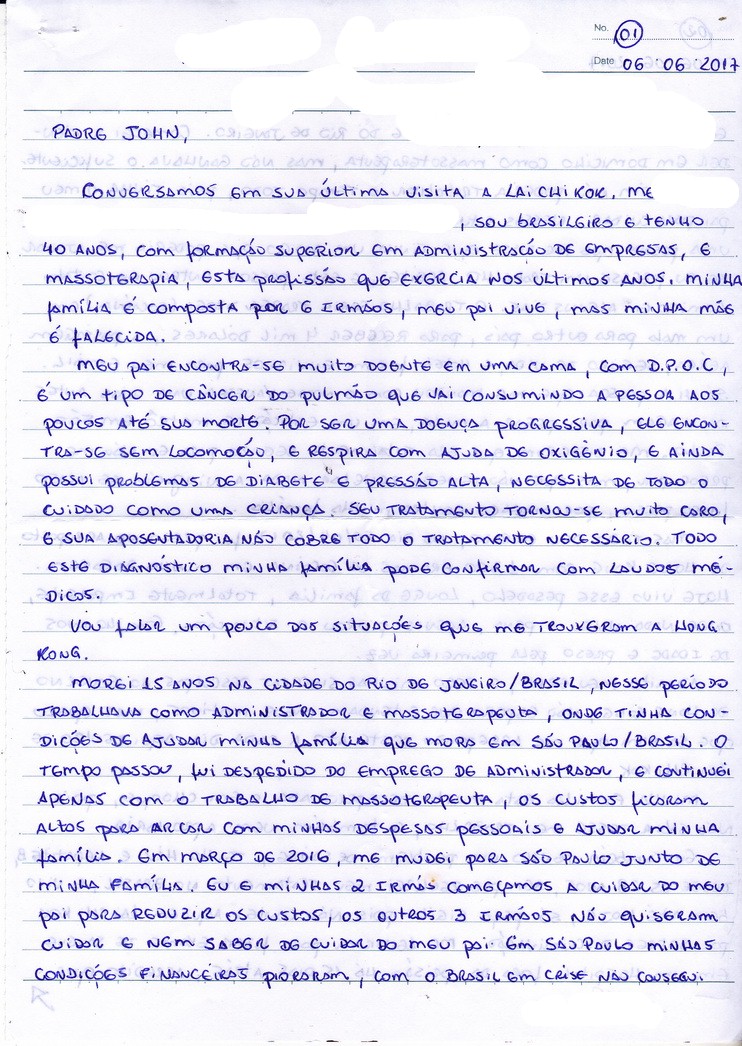 No. 01
Date 06 06 2017
PADRE JOHN,
CONVERSAMOS EM SUA ÚLTIMA VISITA A LAI CHI KOK. ME
, SOU BRASILEIRO E TENHO
40 ANOS, COM FORMAÇÃO SUPERIOR EM ADMINISTRAÇÃO DE EMPRESAS, E
MASSOTERAPIA, ESTA PROFISSÃO QUE EXERCIA NOS ÚLTIMOS ANOS. MINHA
FAMÍLIA É COMPOSTA POR 6 IRMÃOS, MEU PAI VIVE, MAS MINHA MÃE
É FALECIDA.
MEU PAI ENCONTRA-SE MUITO DOENTE EM UMA CAMA, COM D.P.O.C,
É UM TIPO DE CÂNCER DO PULMÃO QUE VAI CONSUMINDO A PESSOA AOS
POUCOS ATÉ SUA MORTE. POR SER UMA DOENÇA PROGRESSIVA, ELE ENCON-
TRA-SE SEM LOCOMOÇÃO, E RESPIRA COM AJUDA DE OXIGÊNIO, E AINDA
POSSUI PROBLEMAS DE DIABETE E PRESSÃO ALTA, NECESSITA DE TODO O
CUIDADO COMO UMA CRIANÇA. SEU TRATAMENTO TORNOU-SE MUITO CARO,
E SUA APOSENTADORIA NÃO COBRE TODO O TRATAMENTO NECESSÁRIO. TODO
ESTE DIAGNÓSTICO MINHA FAMÍLIA PODE CONFIRMAR COM LAUDOS MÉ-
DICOS.
VOU FALAR UM POUCO DAS SITUAÇÕES QUE ME TROUXERAM A HONG
KONG.
MOREI 15 ANOS NA CIDADE DO RIO DE JANEIRO/BRASIL, NESSE PERÍODO
TRABALHAVA COMO ADMINISTRADOR E MASSOTERAPEUTA, ONDE TINHA CON-
DIÇÕES DE AJUDAR MINHA FAMÍLIA QUE MORA EM SÃO PAULO/BRASIL. O
TEMPO PASSOU, FUI DESPEDIDO DO EMPREGO DE ADMINISTRADOR, E CONTINUEI
APENAS COM O TRABALHO DE MASSOTERAPEUTA, OS CUSTOS FICARAM
ALTOS PARA ARCAR COM MINHAS DESPESAS PESSOAIS E AJUDAR MINHA
FAMÍLIA. EM MARÇO DE 2016, ME MUDEI PARA SÃO PAULO JUNTO DE
MINHA FAMÍLIA. EU E MINHAS 2 IRMÃS COMEÇAMOS A CUIDAR DO MEU
PAI PARA REDUZIR OS CUSTOS, OS OUTROS 3 IRMÃOS NÃO QUISERAM
CUIDAR E NEM SABER DE CUIDAR DO MEU PAI. EM SÃO PAULO MINHAS
CONDIÇÕES FINANCEIRAS PIORARAM, COM O BRASIL EM CRISE NÃO CONSEGUI.